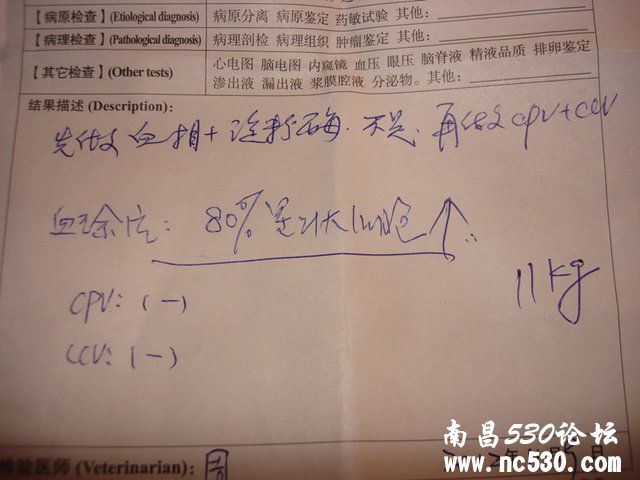 【病原检查】(Etiological diagnosis) 病原分离 病原鉴定 药敏试验 其他:
【病理检查】(Pathological diagnosis) 病理剖检 病理组织 肿瘤鉴定 其他:
【其它检查】(Other tests) 心电图 脑电图 内窥镜 血压 眼压 脑脊液 精液品质 排卵鉴定
渗出液 漏出液 浆膜腔液 分泌物。其他:
结果描述 (Description):
先做 血相+诊断 不是 再做 CPV+CCV
血涂片: 80% ↑
11kg
CPV: (-)
CCV: (-)
检验医师 (Veterinarian):
年 月 日
南昌530论坛
www.nc530.com